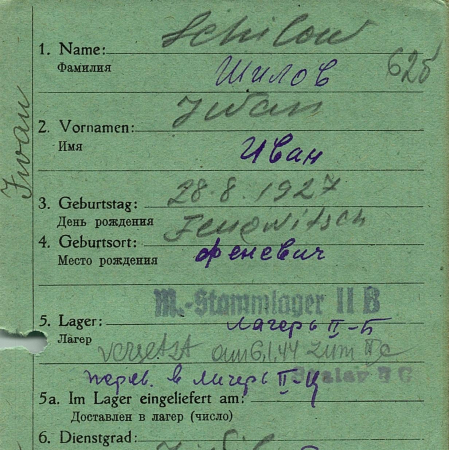 Schilow
1. Name:
Фамилия
Шилов
626
Iwan
2. Vornamen:
Имя
Иван
Iwan
3. Geburtstag: 28.8.1927
День рождения
4. Geburtsort:
Место рождения
феневич
M.-Stammlager II B
5. Lager: лагерь II-Б
Лагерь
versetzt am 6.1.44 zum II c
Stalag II C
перев. в лагерь II-Ц
5a. Im Lager eingeliefert am:
Доставлен в лагер (число)
6. Dienstgrad: